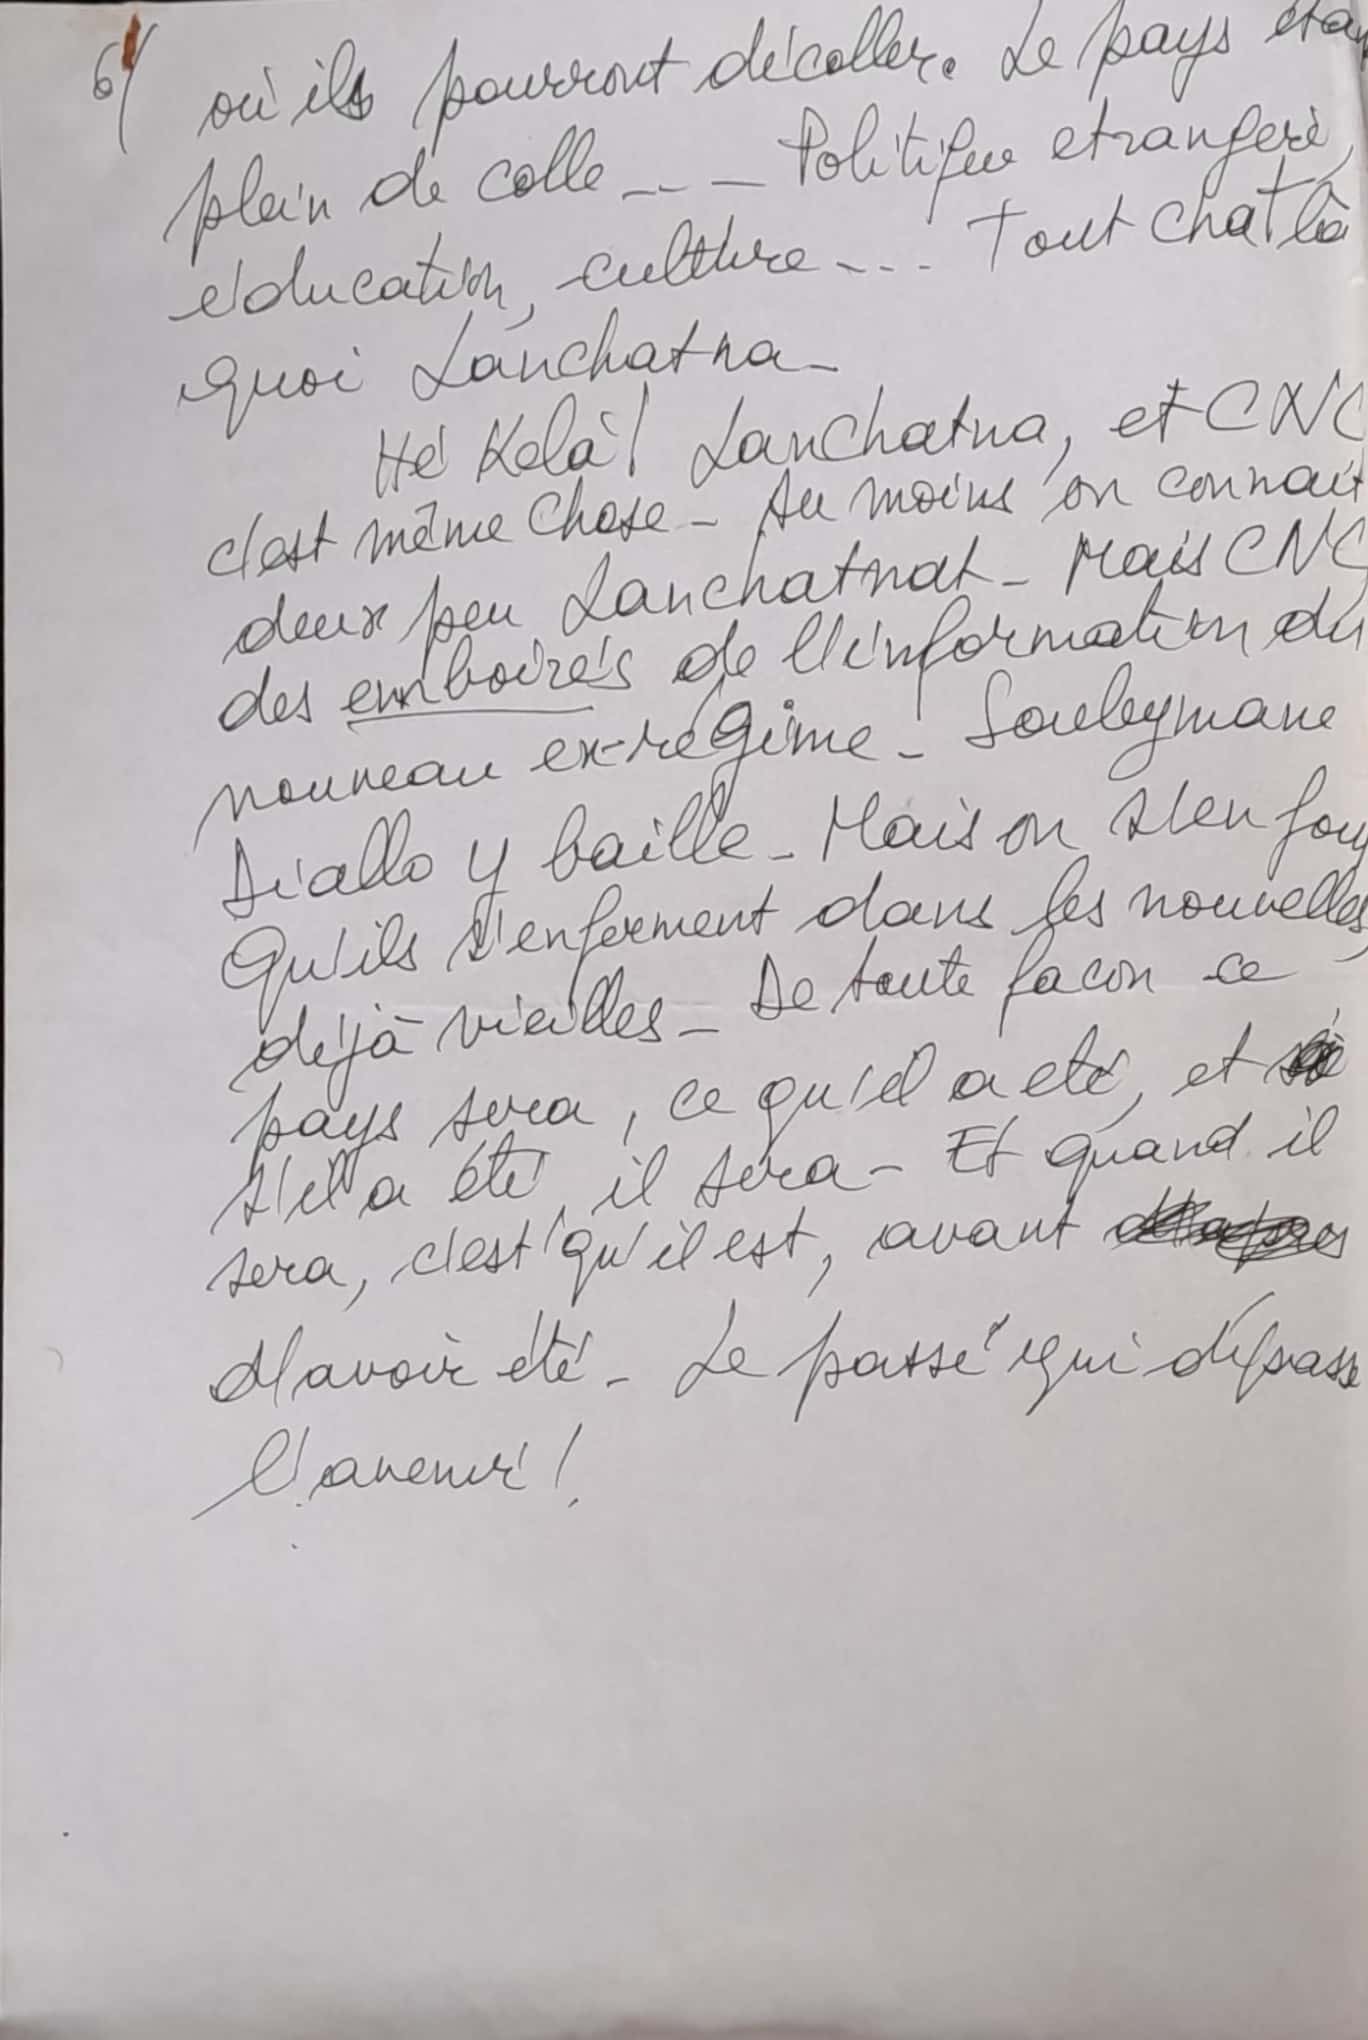 6/ où ils pourront décoller. Le pays étan
plein de colle --- Politique etrangerè,
éducation, culture --- Tout chat là
quoi Lanchatna -
Hé Kéla! Lanchatna, et CNC
c'est même chose - Au moins on connait
deux peu Lanchatnat - Mais CNC
des emboirés de l'information du
nouveau ex-régime - Souleymane
Diallo y baille - Mais on s'en fou
Qu'ils s'enferment dans les nouvelles,
déjà vieilles - De toute facon ce
pays sera, ce qu'il a eté, et
s'il a été, il sera - Et quand il
sera, c'est qu'il est, avant
d'avoir été - Le passé qui dépasse
l'avenir!